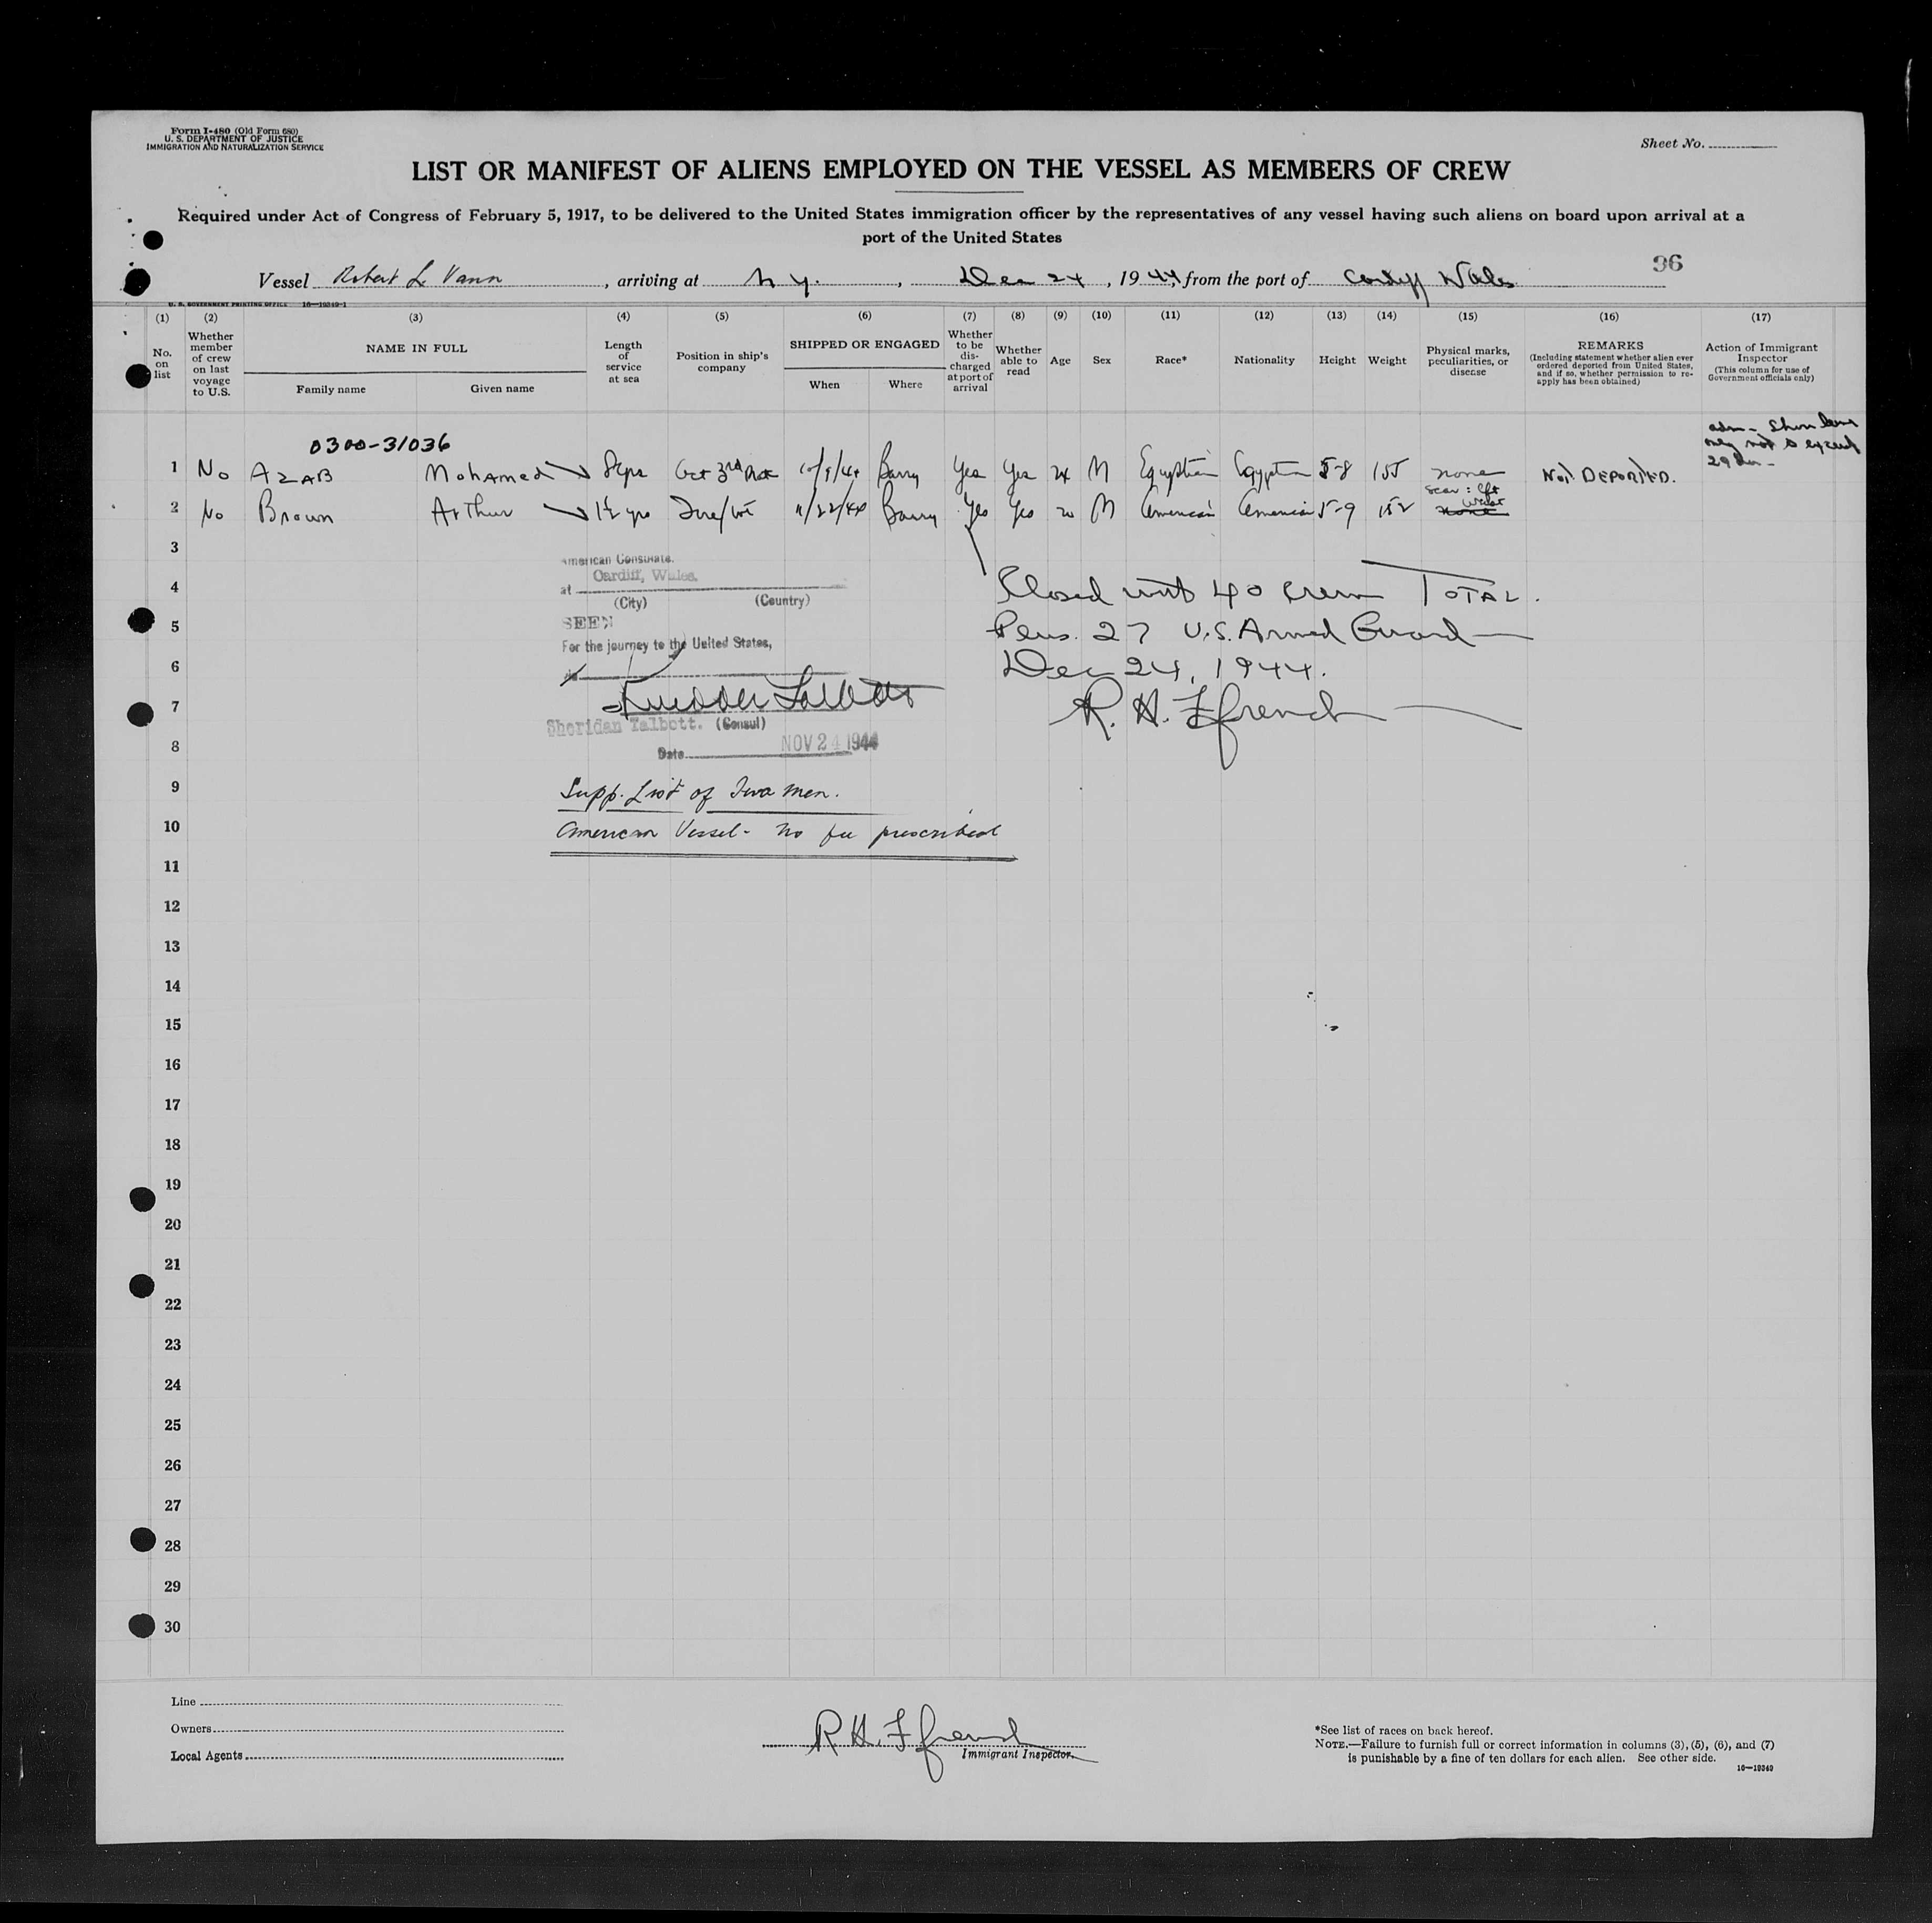 Form I-480 (Old Form 680)
U. S. DEPARTMENT OF JUSTICE
IMMIGRATION AND NATURALIZATION SERVICE
Sheet No.
LIST OR MANIFEST OF ALIENS EMPLOYED ON THE VESSEL AS MEMBERS OF CREW
Required under Act of Congress of February 5, 1917, to be delivered to the United States immigration officer by the representatives of any vessel having such aliens on board upon arrival at a
port of the United States
96
Vessel Robert L Vann, arriving at N Y., Dec 24, 1944, from the port of Cardiff Wales
U. S. GOVERNMENT PRINTING OFFICE 16-19349-1
(1) (2) (3) (4) (5) (6) (7) (8) (9) (10) (11) (12) (13) (14) (15) (16) (17)
No. on list
Whether member of crew on last voyage to U.S.
NAME IN FULL
Family name Given name
Length of service at sea
Position in ship's company
SHIPPED OR ENGAGED
When Where
Whether to be discharged at port of arrival
Whether able to read
Age
Sex
Race*
Nationality
Height
Weight
Physical marks, peculiarities, or disease
REMARKS
(Including statement whether alien ever ordered deported from United States, and if so, whether permission to re-apply has been obtained)
Action of Immigrant Inspector
(This column for use of Government officials only)
0300-31036
adm - Shore leave
only not to exceed
29 da -
1 No AZAB Mohamed 8 yrs 3rd 10/9/44 Barry Yes Yes 24 M Egyptian Egyptian 5-8 155 none Not DEPORTED.
scar: left wrist
2 No Brown Arthur 1½ yrs Fire/wt 11/22/44 Barry Yes Yes 20 M American American 5-9 152 none
3
American Consulate.
4
at Cardiff, Wales.
(City) (Country)
Closed with 40 crew TOTAL.
5
SEEN
Plus. 27 U.S. Armed Guard
For the journey to the United States,
6
Dec 24, 1944.
7
R. H. Ffrench
Sheridan Talbott. (Consul)
8
Date NOV 24 1944
9
Supp. List of Two men.
10
American Vessel - No fee prescribed
11
12
13
14
15
16
17
18
19
20
21
22
23
24
25
26
27
28
29
30
Line
Owners
Local Agents
R H. Ffrench
Immigrant Inspector.
*See list of races on back hereof.
NOTE.—Failure to furnish full or correct information in columns (3), (5), (6), and (7)
is punishable by a fine of ten dollars for each alien. See other side.
16-19349